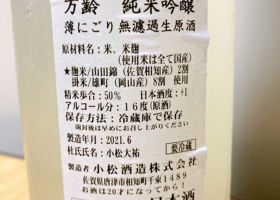 万齢 純米吟醸
薄にごり無濾過生原酒
原材料名：米、米麹
（使用米は全て国産）
★麹米/山田錦（佐賀相知産）2割
掛米/雄町（岡山産）8割 使用
精米歩合：50% 日本酒度：+1
アルコール分：16度（原酒）
保存方法：冷蔵庫で保存
開封後は早めにお召し上がりください
製造年月：2021.6
要冷蔵
杜氏氏名：小松大祐
製造者 小松酒造株式会社
佐賀県唐津市相知町千束1489
お酒は20才になってから！
日本酒